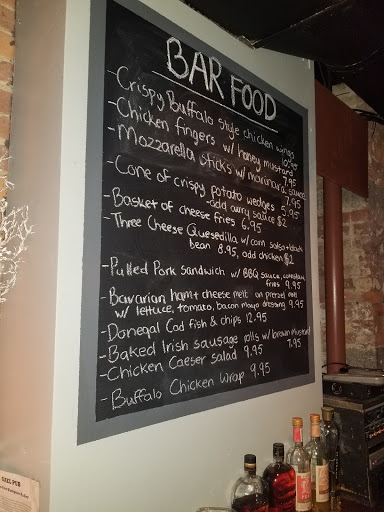 BAR FOOD
-Crispy Buffalo style chicken wings
10.95
-Chicken fingers w/ honey mustard
7.95
-Mozzarella sticks w/ marinara sauce
7.95
-Cone of crispy potato wedges 5.95
-add curry sauce $2
-Basket of cheese fries 6.95
-Three Cheese Quesedilla w/ corn salsa + black
bean 8.95, add chicken $2
-Pulled Pork Sandwich w/ BBQ sauce, coleslaw
fries 9.95
-Bavarian ham + cheese melt on pretzel
w/ lettuce, tomato, bacon mayo dressing 9.95
-Donegal Cod fish & chips 12.95
-Baked Irish sausage rolls w/ brown mustard
7.95
-Chicken Caeser salad 9.95
-Buffalo Chicken Wrap 9.95
PUB